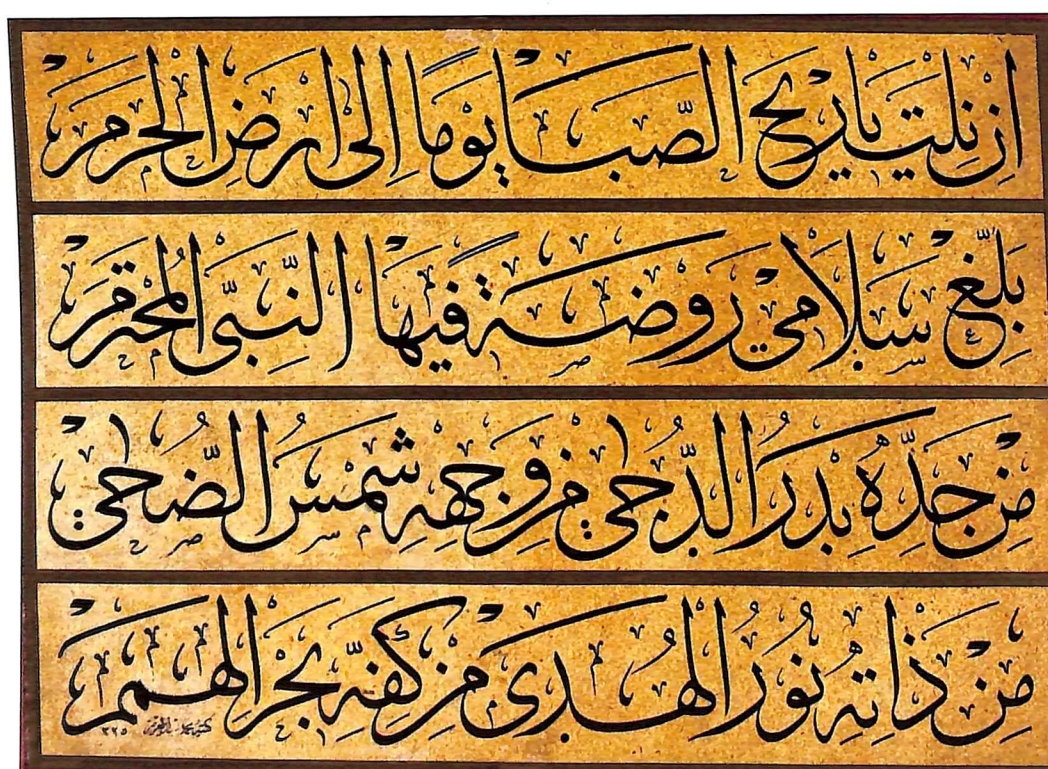 اِنْ نِلْتَ يَا رِيحَ الصَّبَا يَوْمًا اِلَى اَرْضِ الْحَرَمْ
بَلِّغْ سَلَامِي رَوْضَةً فِيهَا النَّبِىُّ الْمُحْتَرَمْ
مِنْ خَدِّهِ بَدْرُ الدُّجٰى مِنْ وَجْهِهِ شَمْسُ الضُّحٰى
مِنْ ذَاتِهِ نُورُ الْهُدَى مِنْ كَفِّهِ بَحْرُ الْهِمَمْ